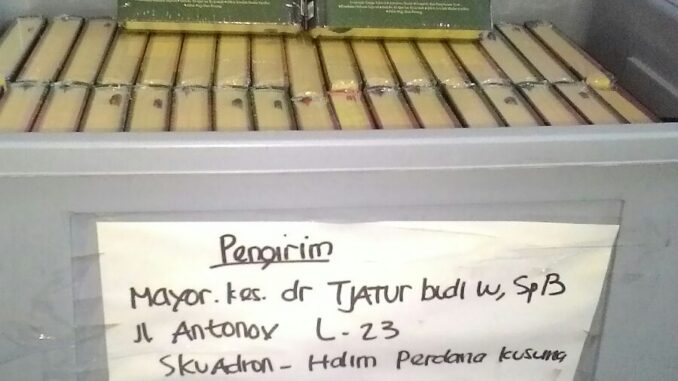 Pengirim
Mayor. kes. dr TJATUR budi w, SpB
Jl Antonov L-23
Skuadron - Halim Perdana kusuma